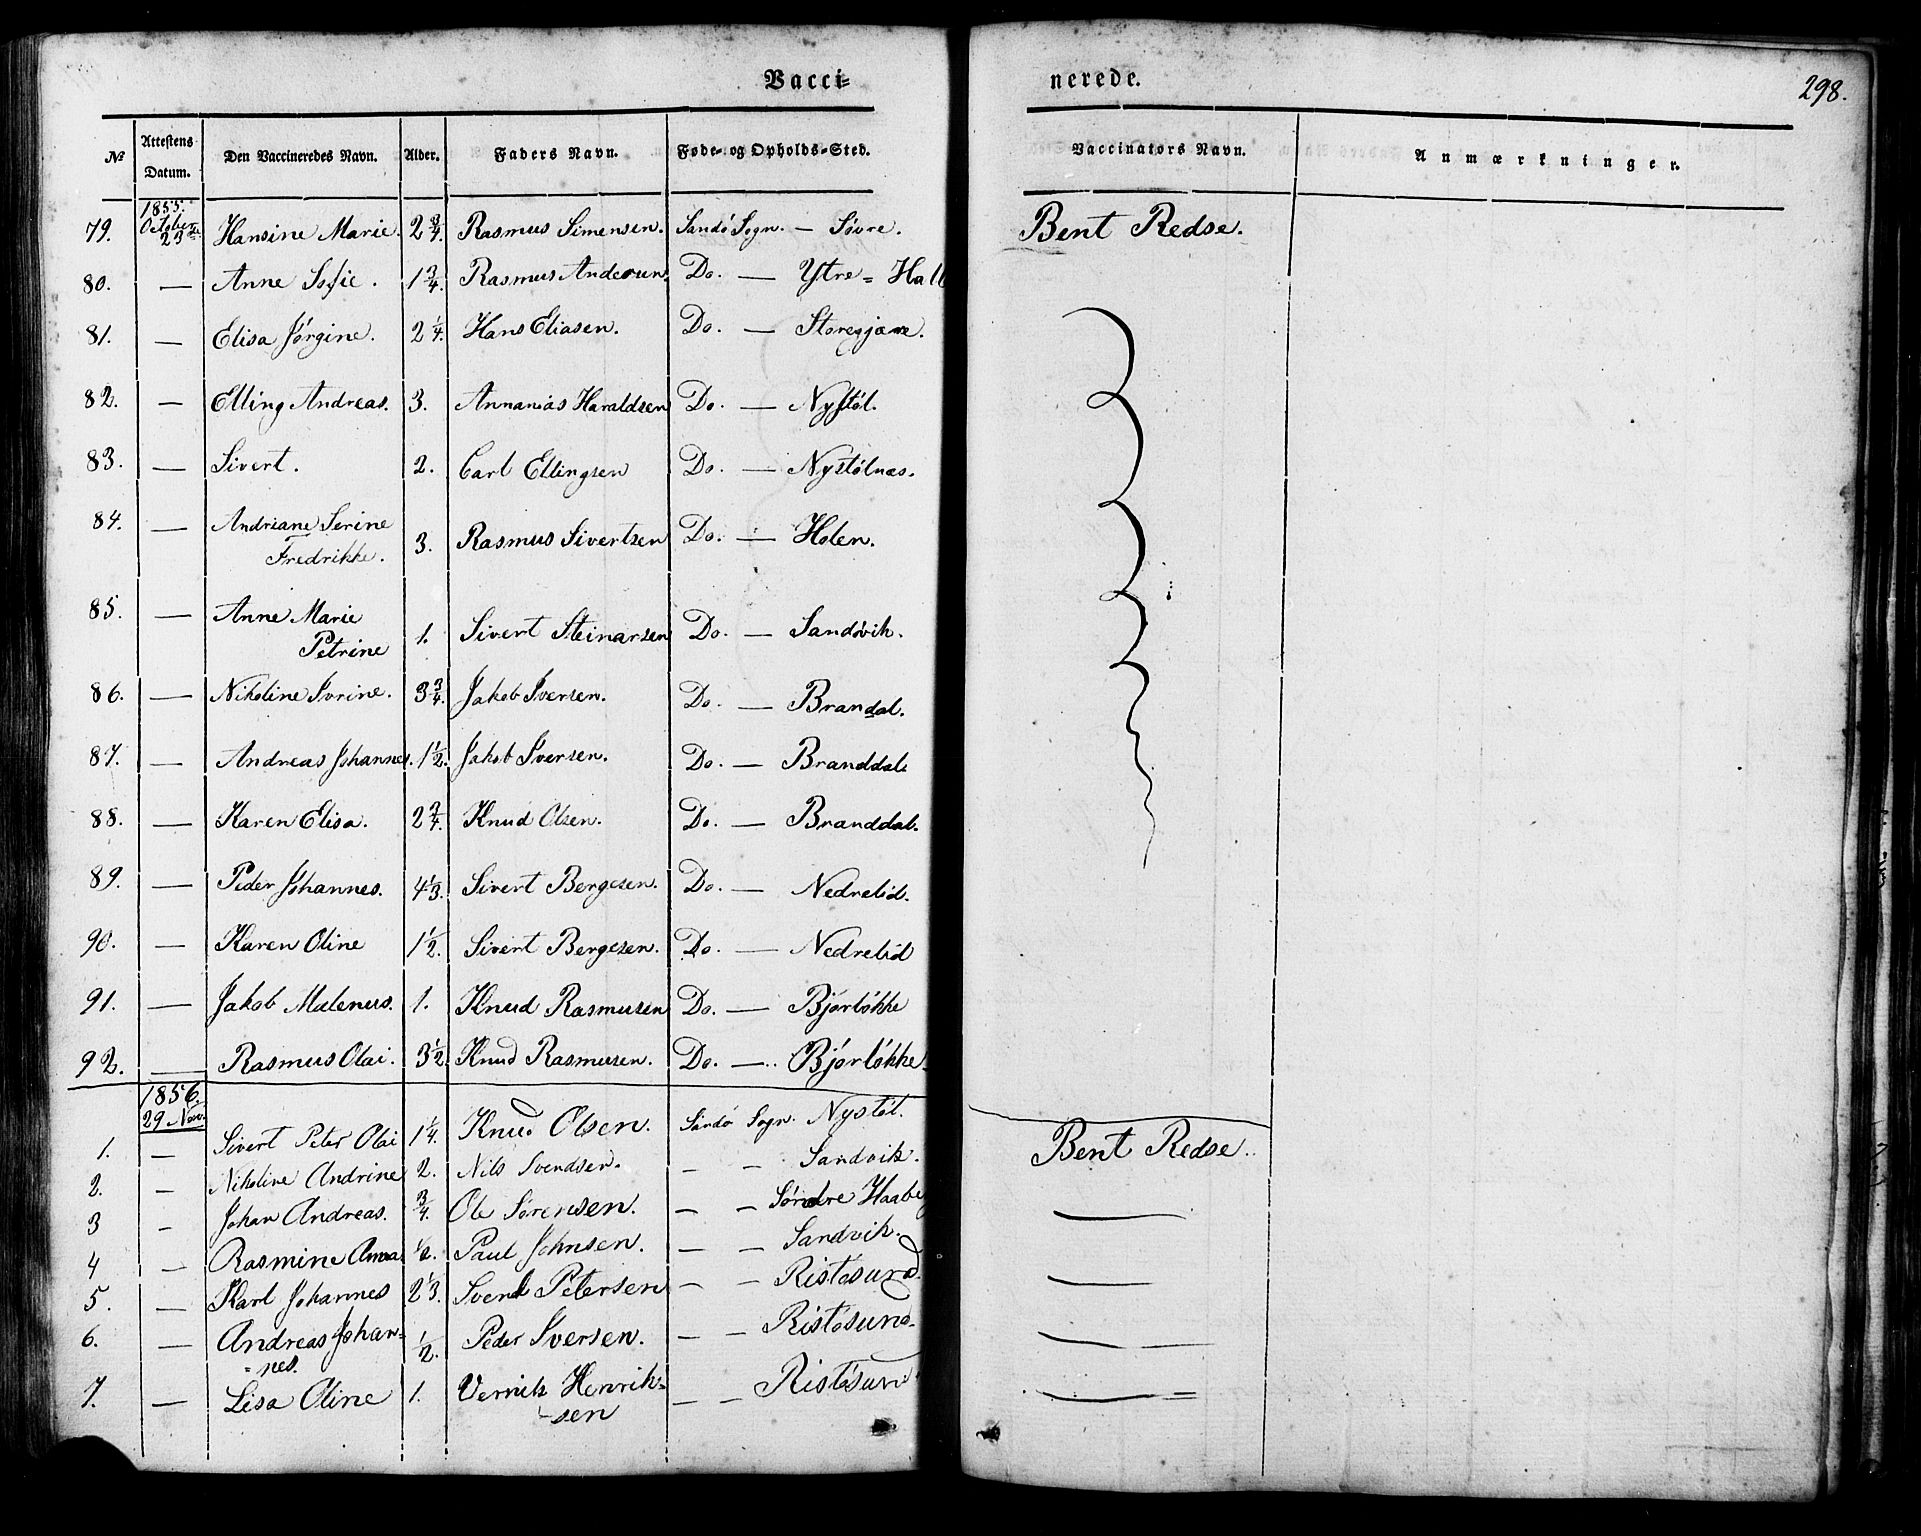 Vacci=
nerede.
298.
№ Attestens Datum. Den Vaccineredes Navn. Alder. Faders Navn. Føde- og Opholds-Sted. Vaccinators Navn. Anmærkninger.
1855.
79. October 23 Hansine Marie. 2 3/4. Rasmus Simensen. Sandö Sogn. — Søvre. Bent Redse.
80. — Anne Sofie. 1 3/4. Rasmus Andersen. Do. — Ytre=Hall
81. — Elisa Jørgine. 2 1/4. Hans Eliasen. Do. — Storegjære.
82. — Elling Andreas. 3. Annanias Haraldsen Do. — Nystøl.
83. — Sivert. 2. Carl Ellingsen Do. — Nystølnæs.
84. — Andriane Serine
Fredrikke. 3. Rasmus Sivertsen Do. — Holen.
85. — Anne Marie
Petrine 1. Sivert Steinarsen Do. — Sandvik.
86. — Nikoline Ivrine. 3 3/4. Jakob Iversen. Do. — Brandal.
87. — Andreas Johannes. 1 1/2. Jakob Iversen. Do. — Branddal.
88. — Karen Elisa. 2 3/4. Knud Olsen. Do. — Branddal.
89. — Peder Johannes. 4 1/3. Sivert Bergesen. Do. — Nedrelid.
90. — Karen Oline 1 1/2. Sivert Bergesen. Do. — Nedrelid
91. — Jakob Malenus. 1. Knud Rasmusen Do. — Bjørløkke
92. — Rasmus Olai. 3 1/2 Knud Rasmusen. Do. —.. Bjørløkke.
1856.
29 Nov.
1. — Sivert Peter Olai 1 1/4. Knud Olsen. Sandö Sogn. Nystøl. Bent Redse.
2. — Nikoline Andrine 2. Nils Svendsen. — — Sandvik.
3 — Johan Andreas. 3/4. Ole Sørensen. — — Søndre Haaberg —
4 — Rasmine Anna 1/2. Paul Johnsen. — — Sandvik.
5. — Karl Johannes 2 1/3. Svend Petersen — — Ristesund. —
6. — Andreas Johan=
=nes. 1/2. Peder Iversen. — — Ristøsund. —
7. — Lisa Oline 1. Vernik Henrik=
-sen — — Ristøsund —